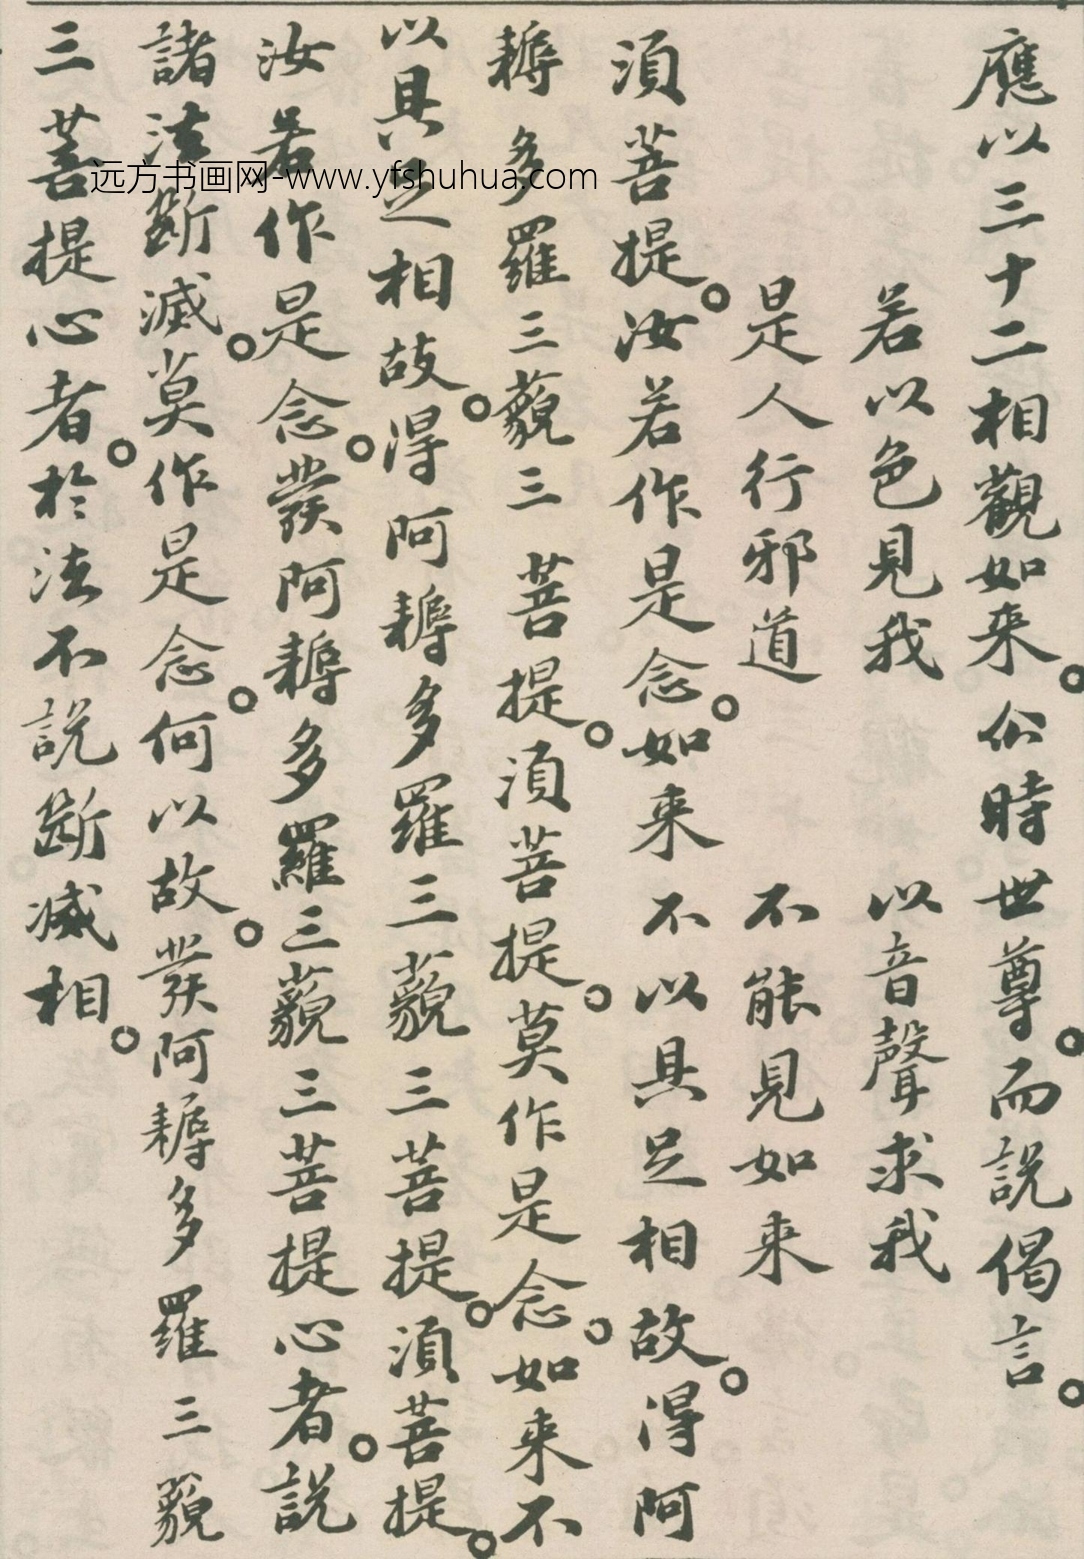 應以三十二相觀如来。尒時世尊。而説偈言。
若以色見我 以音聲求我
是人行邪道 不能見如来
湏菩提。汝若作是念。如来不以具足相故。得阿
耨多羅三藐三菩提。湏菩提。莫作是念。如来不
以具足相故。得阿耨多羅三藐三菩提。湏菩提。
汝若作是念。發阿耨多羅三藐三菩提心者。説
諸法断滅。莫作是念。何以故。發阿耨多羅三藐
三菩提心者。於法不説断滅相。
远方书画网-www.yfshuhua.com